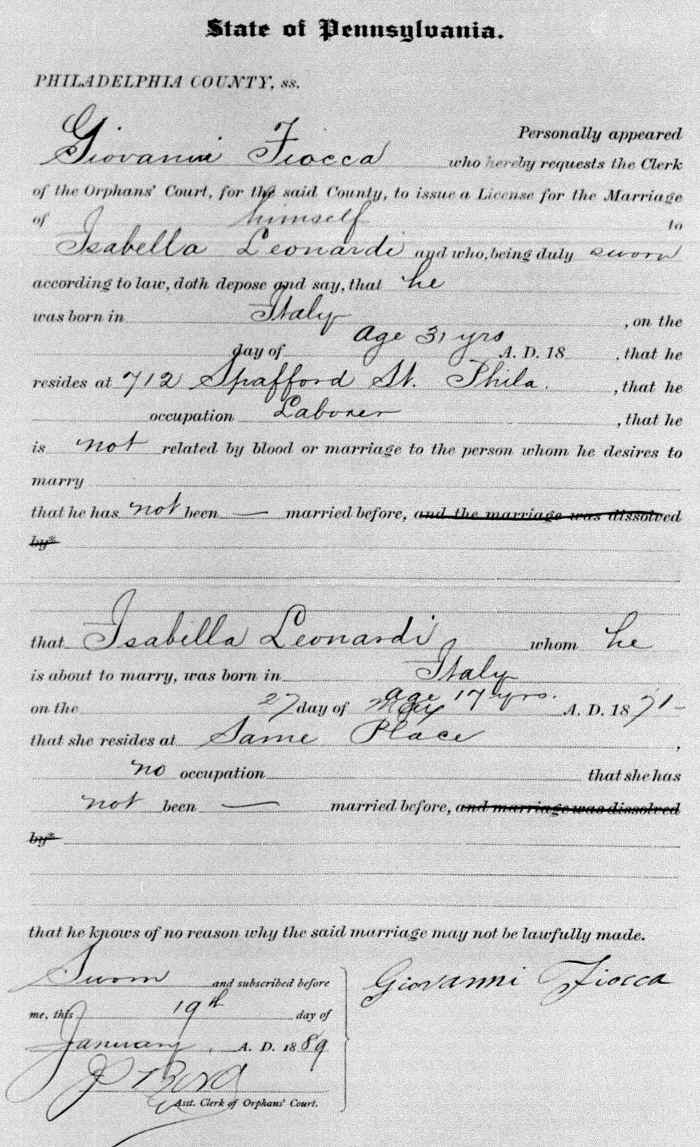 State of Pennsylvania.
PHILADELPHIA COUNTY, ss.
Personally appeared
Giovanni Fiocca who hereby requests the Clerk
of the Orphans' Court, for the said County, to issue a License for the Marriage
of himself to
Isabella Leonardi and who, being duly sworn
according to law, doth depose and say, that he
was born in Italy , on the
age 31 yrs
day of A. D. 18 , that he
resides at 712 Spafford St. Phila. , that he
occupation Laborer , that he
is not related by blood or marriage to the person whom he desires to
marry
that he has not been — married before, and the marriage was dissolved
by*
that Isabella Leonardi whom he
is about to marry, was born in Italy
age 17 yrs.
on the 27 day of May A. D. 18 71
that she resides at Same Place ,
no occupation that she has
not been — married before, and marriage was dissolved
by*
that he knows of no reason why the said marriage may not be lawfully made.
Sworn and subscribed before
me, this 19th day of
January A. D. 18 89
Asst. Clerk of Orphans' Court.
Giovanni Fiocca